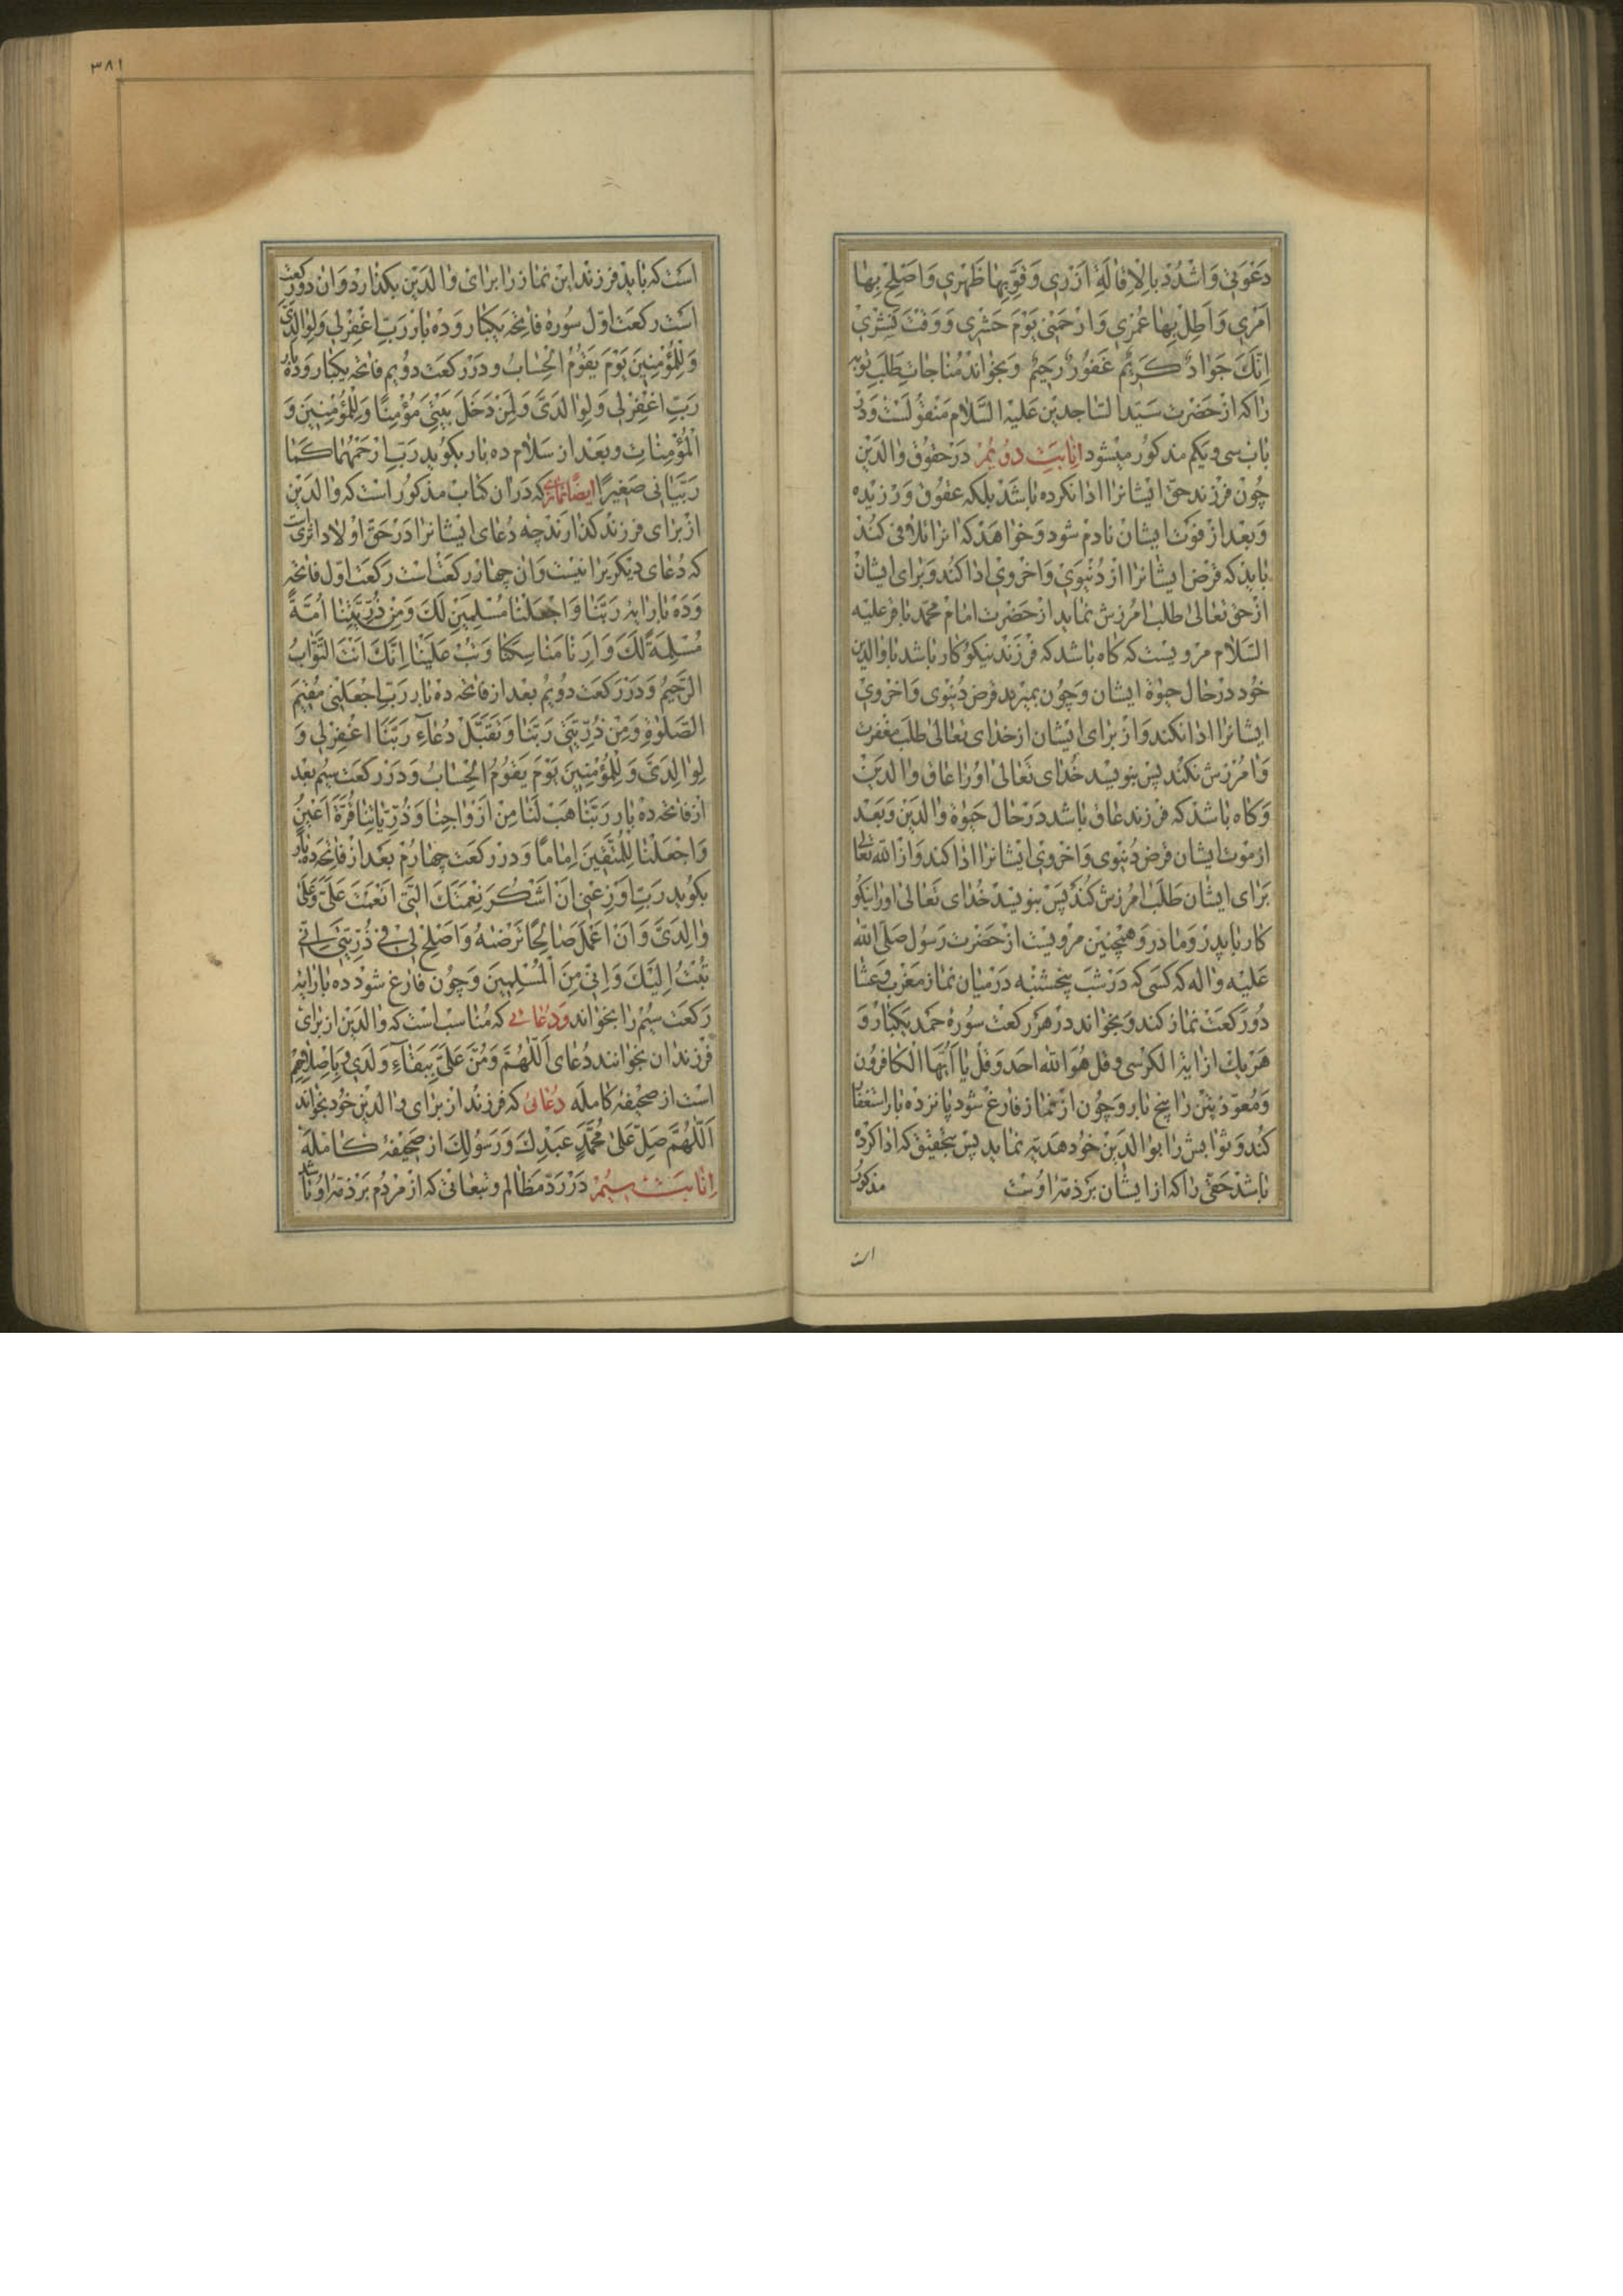 دَعْوَتي وَاشْدُدْ بِالْاِقالَةِ اَزْري وَقَوِّ بِها ظَهْري وَاَصْلِحْ بِها
اَمْري وَاَطِلْ بِها عُمْري وَارْحَمْني يَوْمَ حَشْري وَوَقْتَ نَشْري
اِنَّكَ جَوادٌ كَريمٌ غَفُورٌ رَحيمٌ وبخواند مناجات طلب توبه
را که از حضرت سید الساجدین علیه السلام منقولست و در
باب سی و یکم مذکور میشود انابت دویم در حقوق والدین
چون فرزند حق ایشانرا ادا نکرده باشد بلکه عقوق ورزیده
وبعد از فوت ایشان نادم شود و خواهد که انرا تلافی کند
باید که قرض ایشانرا از دنیوی و اخروی ادا کند و برای ایشان
از حق تعالی طلب امرزش نماید از حضرت امام محمد باقر علیه
السلام مرویست که کاه باشد که فرزند نیکوکار باشد با والدین
خود در حال حیوة ایشان و چون بمیرید قرض دنیوی و اخروی
ایشانرا ادا نکند و از برای ایشان از خدای تعالی طلب مغفرت
وامرزش نکند پس بنویسد خدای تعالی او را عاق والدین
وکاه باشد که فرزند عاق باشد در حال حیوة والدین و بعد
از موت ایشان قرض دنیوی و اخروی ایشانرا ادا کند و از الله تعالی
برای ایشان طلب امرزش کند پس بنویسد خدای تعالی او را نیکو
کار با پدر و مادر و همچنین مرویست از حضرت رسول صلی الله
علیه واله که کسی که در شب پنجشنبه در میان نماز مغرب و عشا
دو رکعت نماز کند و بخواند در هر رکعت سوره حمد یکبار و
هر یک از ایة الکرسی و قل هو الله احد و قل یا ایها الکافرون
ومعوذتین را پنج بار و چون از نماز فارغ شود پانزده بار استغفار
کند و ثوابش را بوالدین خود هدیه نماید پس بتحقیق که ادا کرده
باشد حقی را که از ایشان بر ذمه اوست مذکور
است
٣٨١
است که باید فرزند این نماز را برای والدین بکذارد و ان دو رکعت
است رکعت اول سوره فاتحه یکبار و ده بار رَبِّ اغْفِرْلي وَلِوالِدَيَّ
وَلِلْمُؤْمِنينَ يَوْمَ يَقُومُ الْحِسابُ و در رکعت دویم فاتحه یکبار و ده بار
رَبِّ اغْفِرْلي وَلِوالِدَيَّ وَلِمَنْ دَخَلَ بَيْتِيَ مُؤْمِنًا وَلِلْمُؤْمِنينَ وَ
الْمُؤْمِناتِ و بعد از سلام ده بار بکوید رَبِّ ارْحَمْهُما كَما
رَبَّياني صَغيرًا ایضا نمازی که در ان کتاب مذکور است که والدین
از برای فرزند کذارند چه دعای ایشانرا در حق اولاد اثری است
که دعای دیکریرا نیست و ان چهار رکعت است رکعت اول فاتحه
وده بار ایه رَبَّنا وَاجْعَلْنا مُسْلِمَيْنِ لَكَ وَمِنْ ذُرِّيَّتِنا اُمَّةً
مُسْلِمَةً لَكَ وَاَرِنا مَناسِكَنا وَتُبْ عَلَيْنا اِنَّكَ اَنْتَ التَّوّابُ
الرَّحيمُ و در رکعت دویم بعد از فاتحه ده بار رَبِّ اجْعَلْني مُقيمَ
الصَّلوةِ وَمِنْ ذُرِّيَّتي رَبَّنا وَتَقَبَّلْ دُعاءِ رَبَّنَا اغْفِرْلي وَ
لِوالِدَيَّ وَلِلْمُؤْمِنينَ يَوْمَ يَقُومُ الْحِسابُ و در رکعت سیم بعد
از فاتحه ده بار رَبَّنا هَبْ لَنا مِنْ اَزْواجِنا وَذُرِّيّاتِنا قُرَّةَ اَعْيُنٍ
وَاجْعَلْنا لِلْمُتَّقينَ اِمامًا و در رکعت چهارم بعد از فاتحه ده بار
بکوید رَبِّ اَوْزِعْني اَنْ اَشْكُرَ نِعْمَتَكَ الَّتي اَنْعَمْتَ عَلَيَّ وَعَلى
والِدَيَّ وَاَنْ اَعْمَلَ صالِحًا تَرْضيهُ وَاَصْلِحْ لي في ذُرِّيَّتي اِنّي
تُبْتُ اِلَيْكَ وَاِنّي مِنَ الْمُسْلِمينَ و چون فارغ شود ده بار ایه
رکعت سیم را بخواند ودعائی که مناسب است که والدین از برای
فرزندان بخوانند دعای اَللّهُمَّ وَمُنَّ عَلَيَّ بِبَقاءِ وَلَدي وَبِاِصْلاحِهِمْ
است از صحیفه کامله دعائی که فرزند از برای والدین خود بخواند
اَللّهُمَّ صَلِّ عَلى مُحَمَّدٍ عَبْدِكَ وَرَسُولِكَ از صحیفه کامله
انابت سیم در رد مظالم و تبعاتی که از مردم بر ذمه او باشد